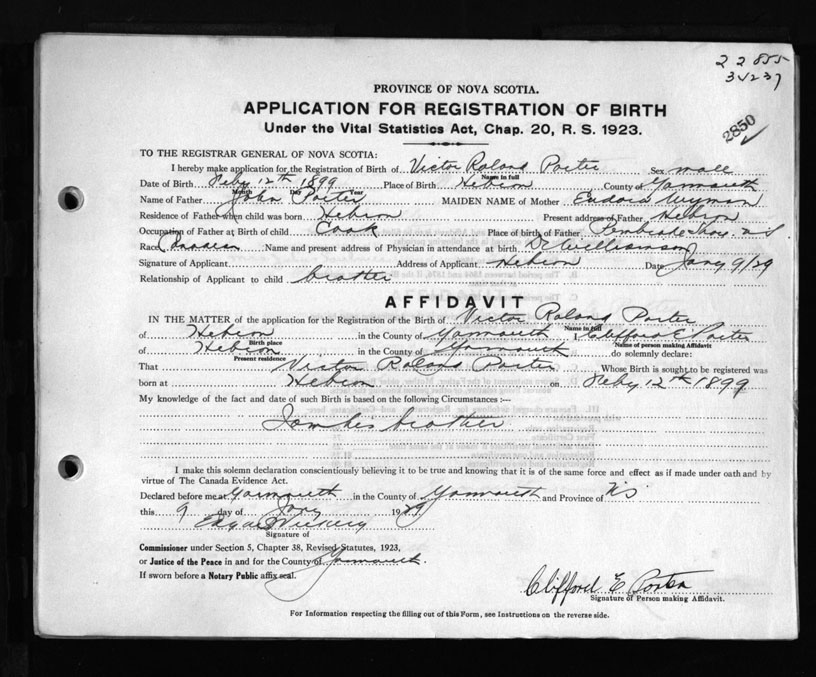 22855
31237
2850
PROVINCE OF NOVA SCOTIA.
APPLICATION FOR REGISTRATION OF BIRTH
Under the Vital Statistics Act, Chap. 20, R. S. 1923.
TO THE REGISTRAR GENERAL OF NOVA SCOTIA:
I hereby make application for the Registration of Birth of Victor Roland Porter Sex male
Name in full
Date of Birth Feby 12th 1899 Place of Birth Hebron County of Yarmouth
Month Day Year
Name of Father John Porter MAIDEN NAME of Mother Eudora Wyman
Residence of Father when child was born Hebron Present address of Father Hebron
Occupation of Father at Birth of child Cook Place of birth of Father Pembroke Shore N.S.
Race Canadian Name and present address of Physician in attendance at birth Dr Williamson
Signature of Applicant Address of Applicant Hebron Date Jany 9/29
Relationship of Applicant to child brother
AFFIDAVIT
IN THE MATTER of the application for the Registration of the Birth of Victor Roland Porter
Name in full
of Hebron in the County of Yarmouth I, Clifford E Porter
Birth place Name of person making Affidavit
of Hebron in the County of Yarmouth do solemnly declare:
Present residence
That Victor Roland Porter Whose Birth is sought to be registered was
born at Hebron on Feby 12th 1899
My knowledge of the fact and date of such Birth is based on the following Circumstances :—
I am his brother
I make this solemn declaration conscientiously believing it to be true and knowing that it is of the same force and effect as if made under oath and by
virtue of The Canada Evidence Act.
Declared before me at Yarmouth in the County of Yarmouth and Province of NS
this 9 day of Jany 1929
Signature of
Commissioner under Section 5, Chapter 38, Revised Statutes, 1923,
or Justice of the Peace in and for the County of Yarmouth.
If sworn before a Notary Public affix seal.
Clifford E Porter
Signature of Person making Affidavit.
For Information respecting the filling out of this Form, see Instructions on the reverse side.